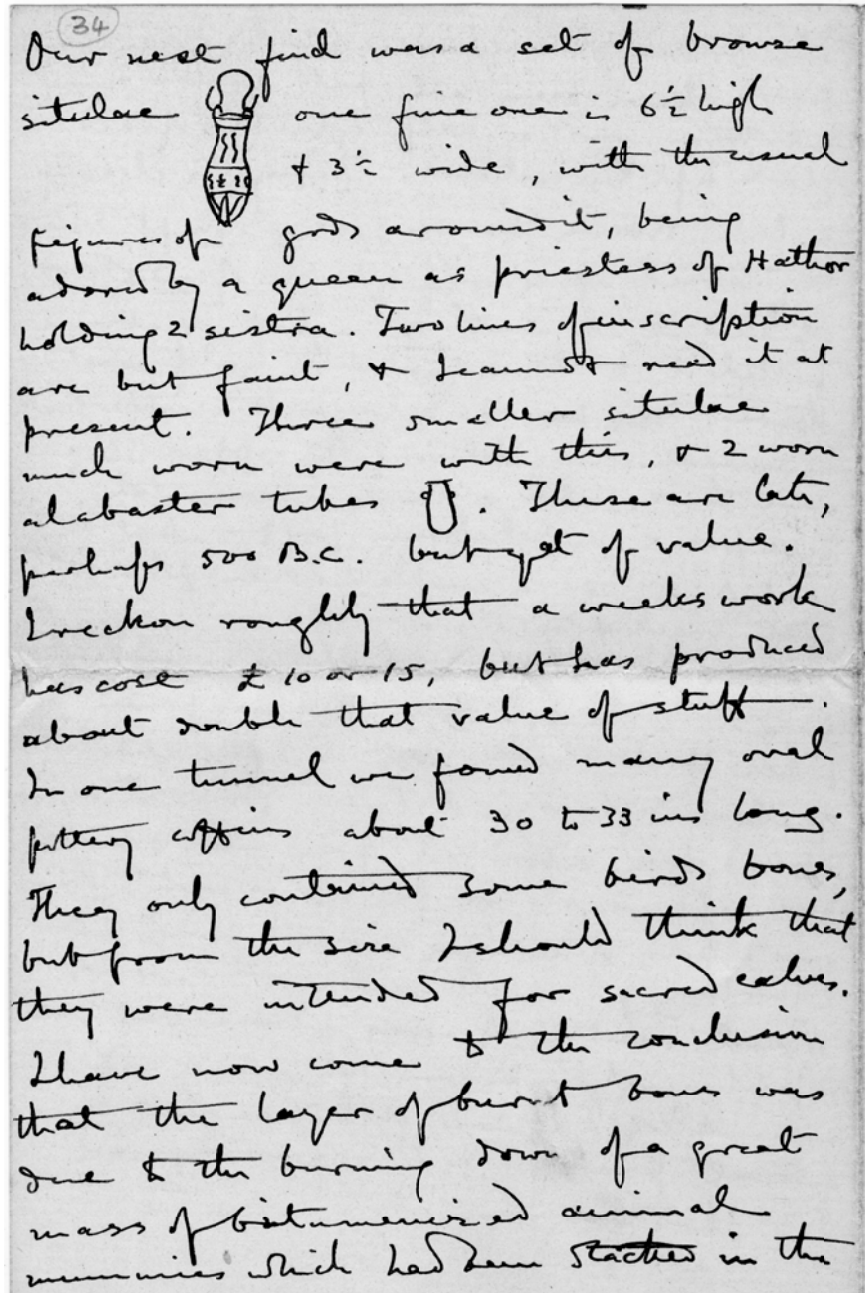 34
Our next find was a set of bronze
situlae one fine one is 6½ high
+ 3½ wide, with the usual
figures of gods around it, being
adored by a queen as priestess of Hathor
holding 2 sistra. Two lines of inscription
are but faint, & I cannot read it at
present. Three smaller situlae
much worn were with this, & 2 worn
alabaster tubes. These are late,
perhaps 500 B.C. but yet of value.
I reckon roughly that a weeks work
has cost £10 or 15, but has produced
about double that value of stuff.
In one tunnel we found many oval
pottery coffins about 30 to 33 ins long.
They only contained some birds bones,
but from the size I should think that
they were intended for sacred calves.
I have now come to the conclusion
that the layer of burnt bones was
due to the burning down of a great
mass of bitumenized animal
mummies which had been stacked in the